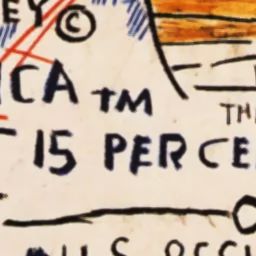 EY ©
CA TM
TH
15 PERCE